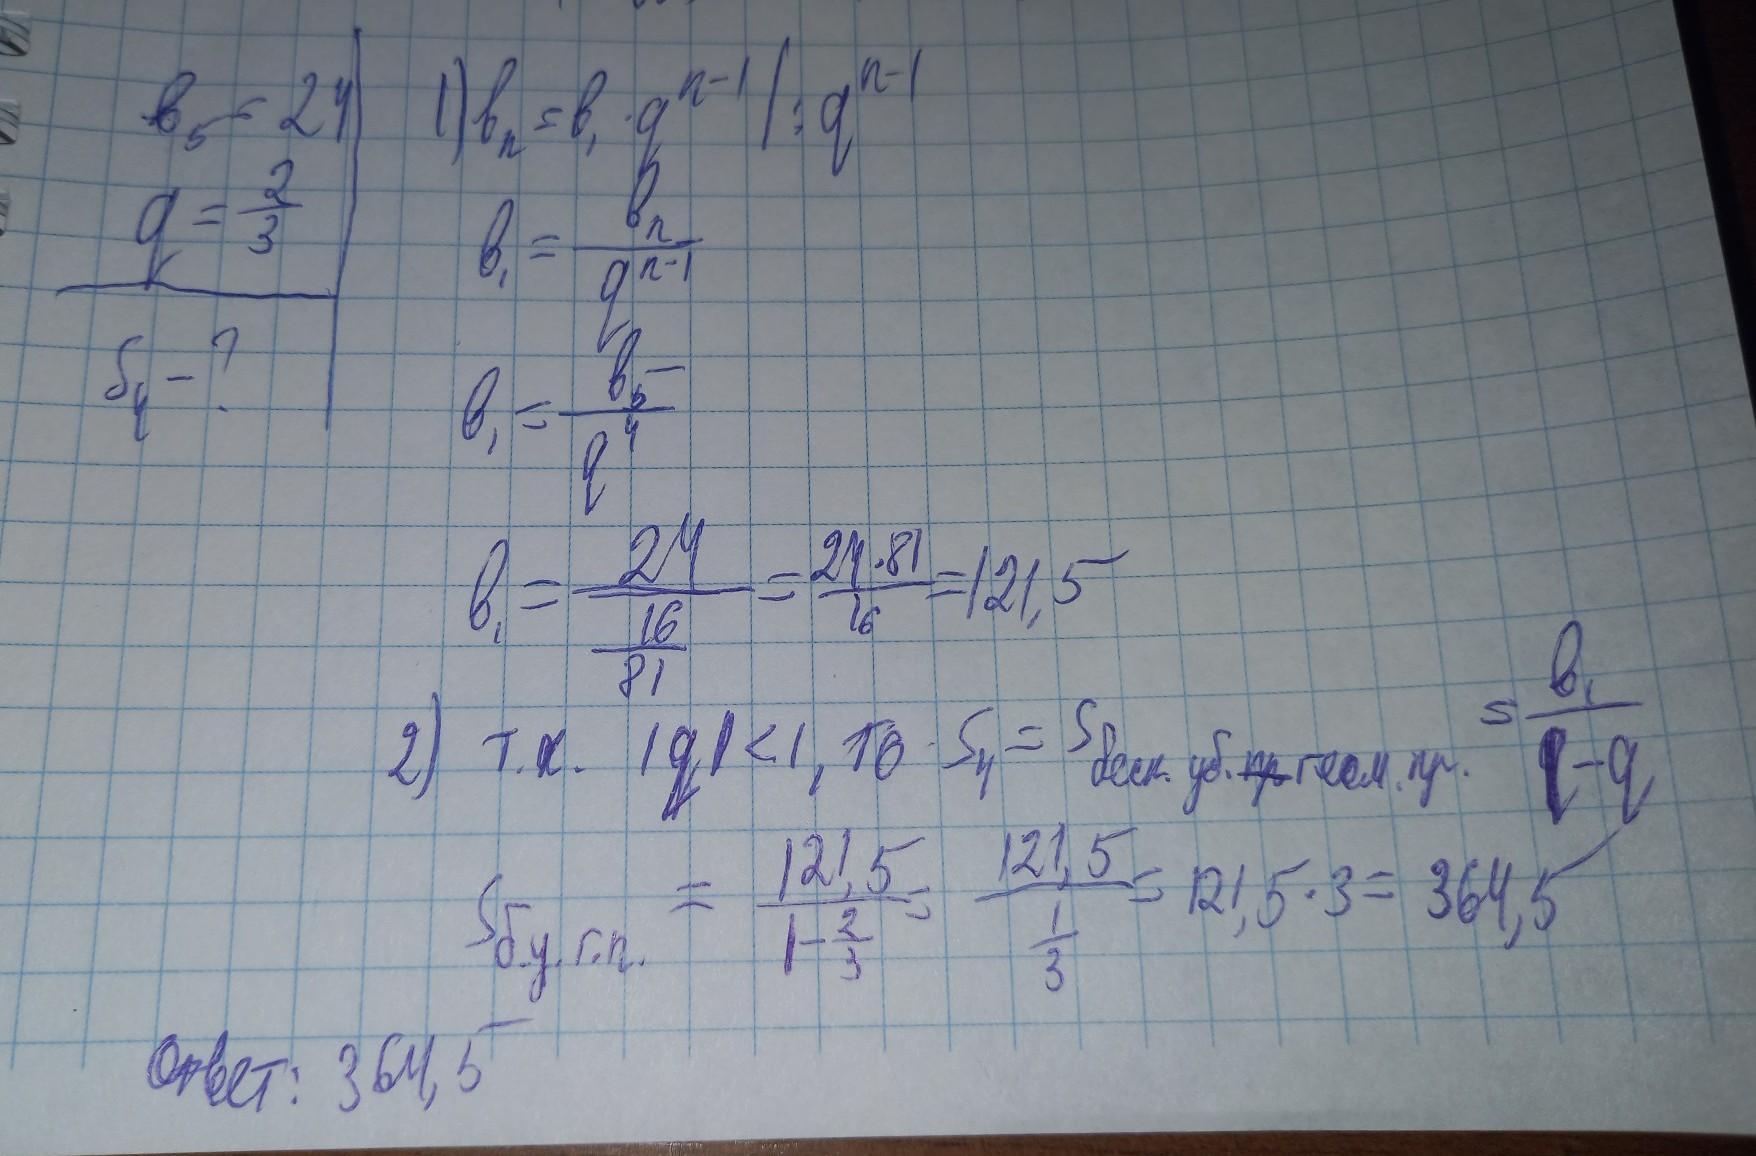 в₅ = 24
q = 2/3
S₄ - ?
1) вₙ = в₁ · qⁿ⁻¹ | : qⁿ⁻¹
в₁ = вₙ / qⁿ⁻¹
в₁ = в₅ / q⁴
в₁ = 24 / (16/81) = 24·81 / 16 = 121,5
2) т.к. |q| < 1, то S₄ = S беск. уб. геом. пр. = в₁ / (1-q)
S б.у.г.п. = 121,5 / (1 - 2/3) = 121,5 / (1/3) = 121,5 · 3 = 364,5
Ответ: 364,5